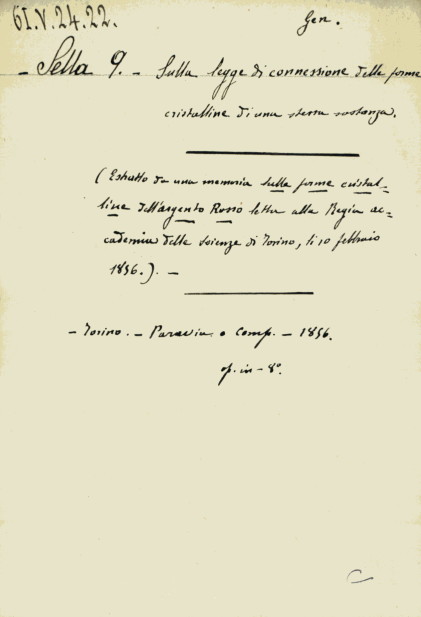 61.V.24.22.
Gen.
- Sella Q. - Sulla legge di connessione delle forme
cristalline di una stessa sostanza.
(Estratto da una memoria sulle forme cristal-
line dell'argento Rosso letta alla Regia ac-
cademia delle scienze di Torino, li 10 febbraio
1856.). -
- Torino. - Paravia e Comp. - 1856.
op. in - 8°.